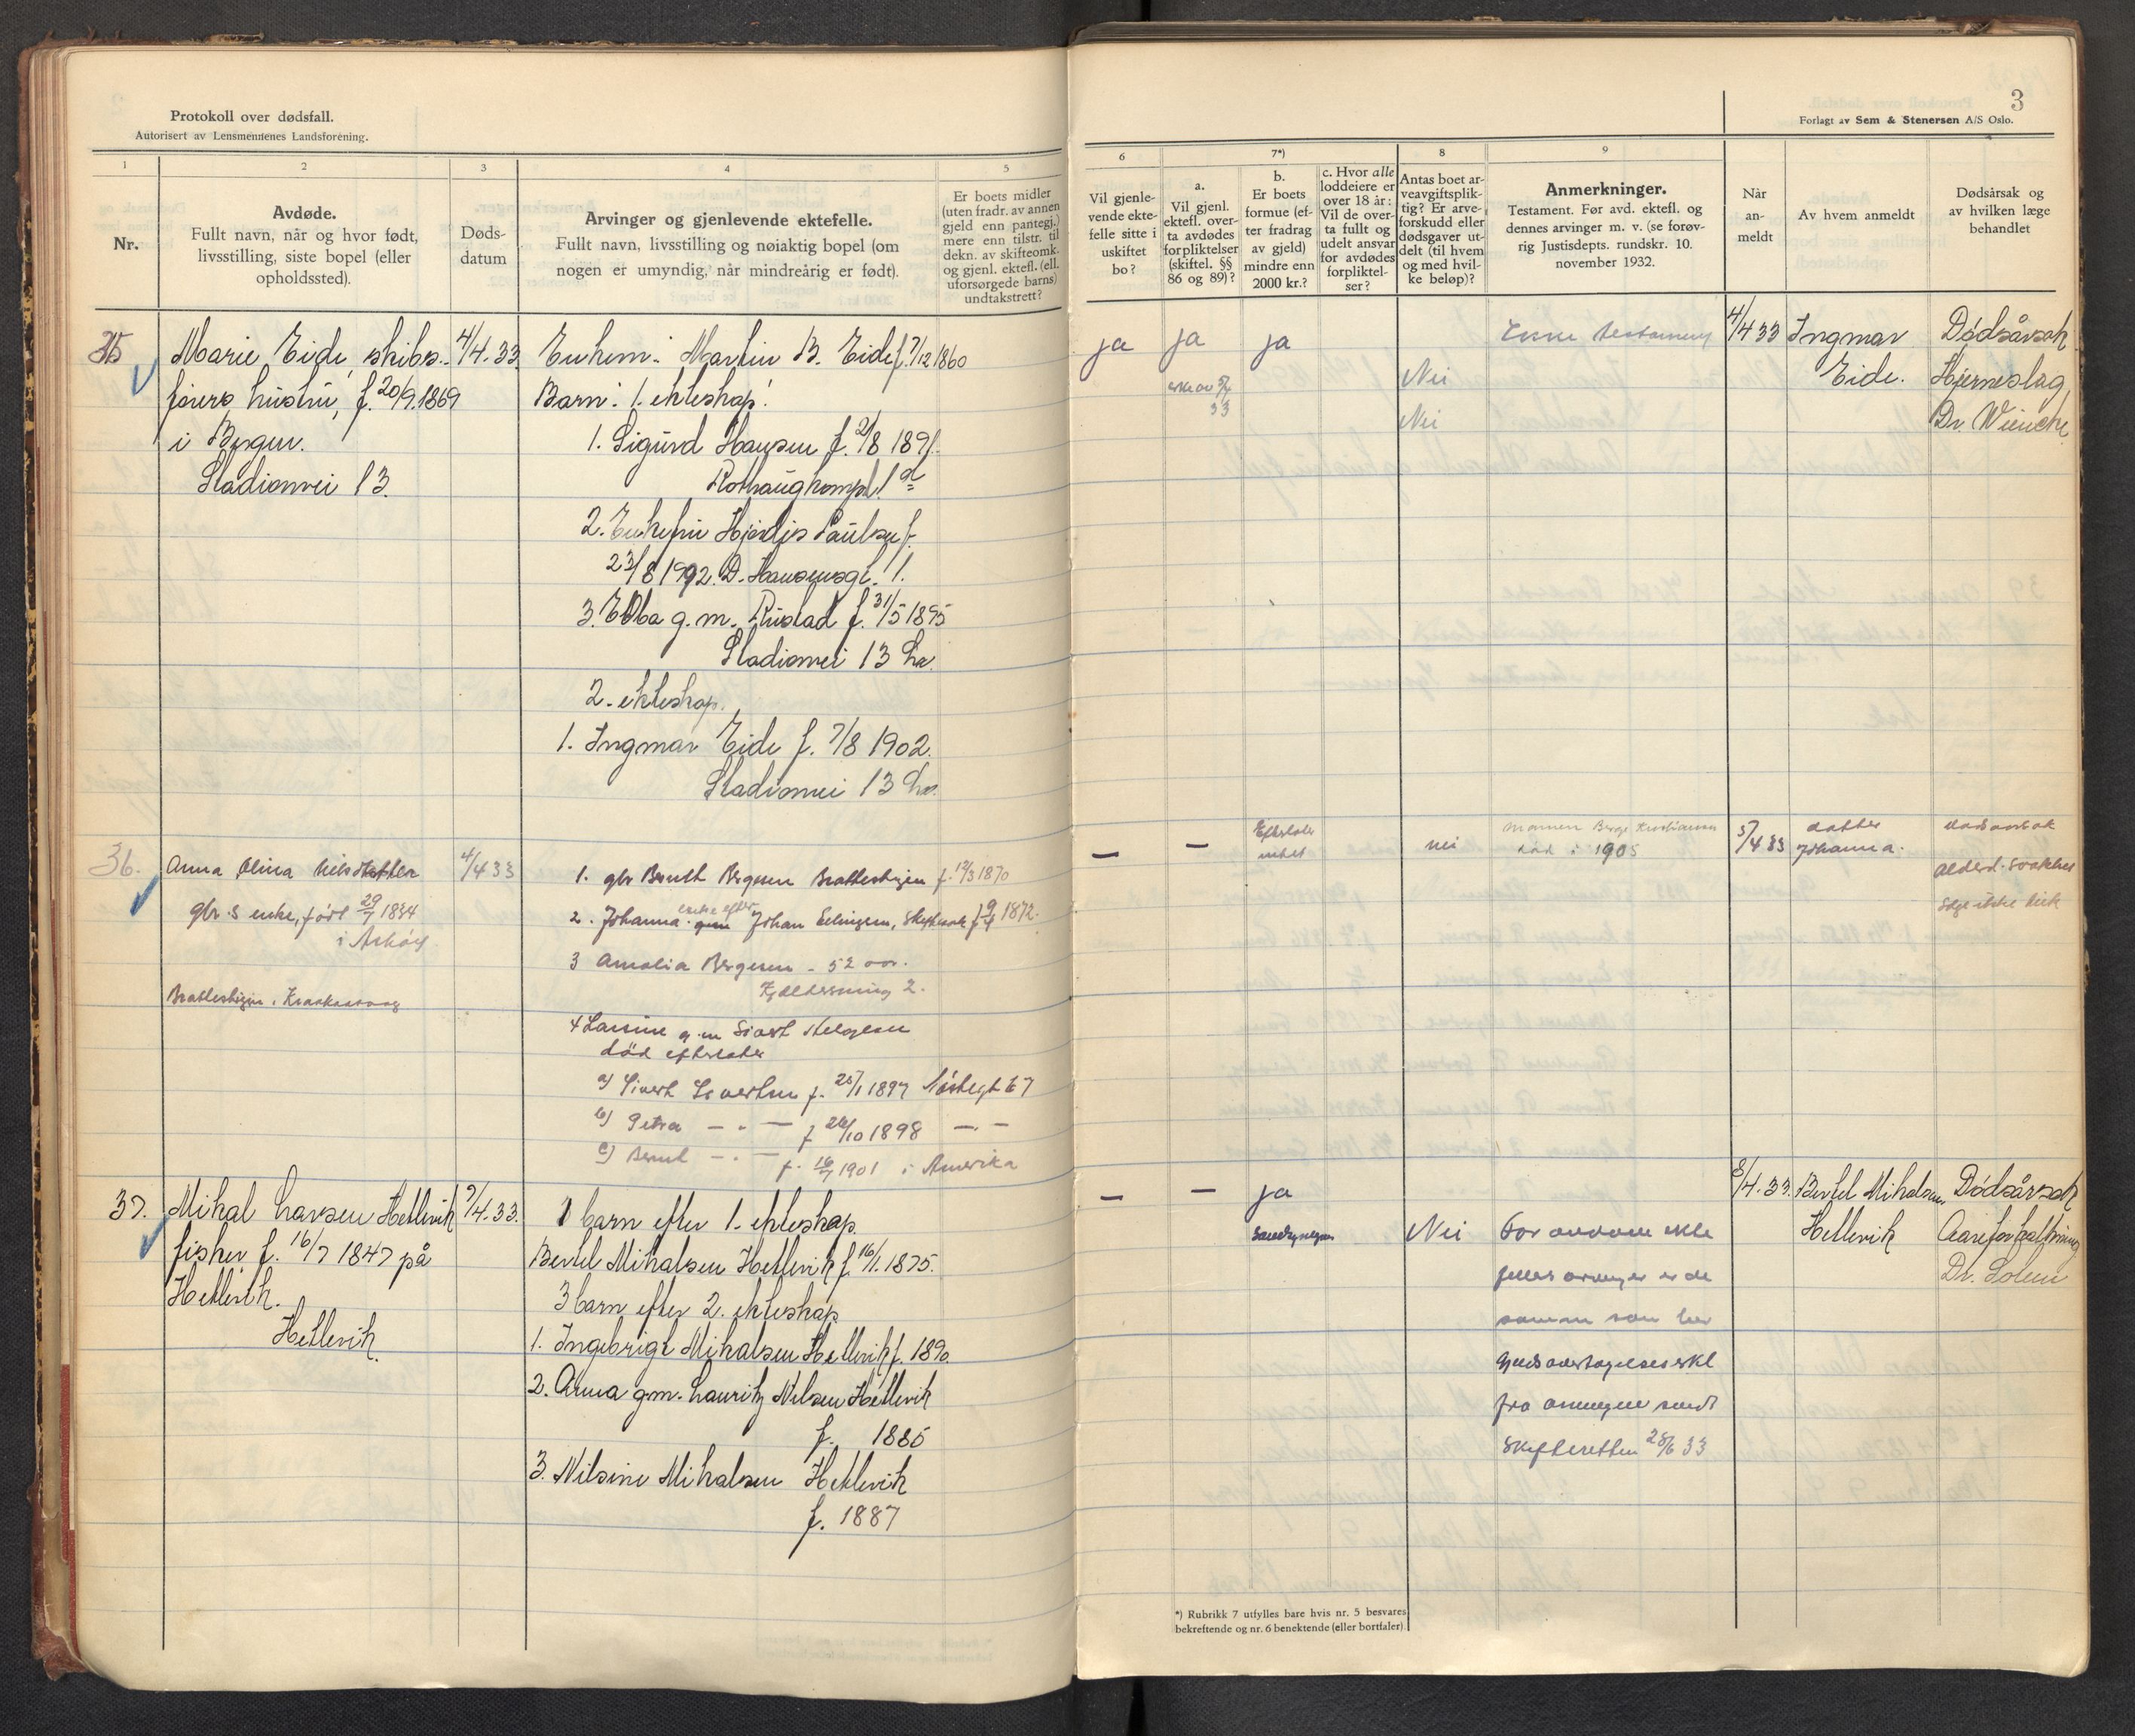 Protokoll over dødsfall.
Autorisert av Lensmennenes Landsforening.
1
2
3
4
5
Nr.
Avdøde.
Fullt navn, når og hvor født,
livsstilling, siste bopel (eller
opholdssted).
Døds-
datum
Arvinger og gjenlevende ektefelle.
Fullt navn, livsstilling og nøiaktig bopel (om
nogen er umyndig, når mindreårig er født).
Er boets midler
(uten fradr. av annen
gjeld enn pantegj.)
mere enn tilstr. til
dekn. av skifteomk.
og gjenl. ektefl. (ell.
uforsørgede barns)
undtakstrett?
35
Marie Eide, skibs-
førers hustru, f. 20/9.1869
i Bergen.
Stadionvei 13.
4/4.33.
Enkem: Martin B. Eide f. 7/12 1860
Barn: 1. ekteskap:
1. Sigurd Hansen f. 21/8 1891.
2. Enkefru Hjørdis Paulsen f.
23/8 1992. D. Hansensgt. 11.
3. Ebba g.m. Rustad f. 31/5 1895
Stadionvei 13
2. ekteskap.
1. Ingmar Eide f. 7/8 1902.
Stadionvei 13
36.
Anna Olina
gbr.s enke, født 29/7 1834
i Askøy
4/4 33
1. gbr Bergesen f. 12/3 1870
enke efter
2. Johanna Johan f 9/4 1872.
3 Amalia Bergesen - 52 aar.
2.
4 Larsine g.m Sivert Helgesen
død efterlater
a) Sivert Sivertsen f. 28/1 1897 Nøstegt 67
b) Petra — " — f 26/10 1898 — " —
c) Bernt — " — f. 16/7 1901 i Amerika
37.
Mikal Larsen Hetlevik
fisker f. 16/7 1847 på
Hetlevik.
Hetlevik.
7/4.33.
1 barn efter 1. ekteskap.
Bertel Mikalsen Hetlevik f. 16/1.1875.
3 barn efter 2. ekteskap
1. Ingebrigt Mikalsen Hetlevik f. 1890.
2. Anna g.m. Lauritz Nilsen Hetlevik
f. 1885
3. Nilsine Mikalsen Hetlevik
f. 1887
3
Forlagt av Sem & Stenersen A/S Oslo.
6
7*)
8
9
Vil gjenle-
vende ekte-
felle sitte i
uskiftet
bo?
a.
Vil gjenl.
ektefl. over-
ta avdødes
forpliktelser
(skiftel. §§
86 og 89)?
b.
Er boets
formue (ef-
ter fradrag
av gjeld)
mindre enn
2000 kr.?
c. Hvor alle
loddeiere er
over 18 år:
Vil de over-
ta fullt og
udelt ansvar
for avdødes
forpliktel-
ser?
Antas boet ar-
veavgiftsplik-
tig? Er arve-
forskudd eller
dødsgaver ut-
delt (til hvem
og med hvil-
ke beløp)?
Anmerkninger.
Testament. Før avd. ektefl. og
dennes arvinger m. v. (se forøv-
rig Justisdepts. rundskr. 10.
november 1932.
Når
an-
meldt
Av hvem anmeldt
Dødsårsak og
av hvilken læge
behandlet
ja
ja
33
ja
Nei
Nei
Testament
4/4 33
Ingmar
Eide.
Dødsårsak
Hjerneslag
Dr. Wiencke
—
—
Efterlater
intet
nei
Mannen Berge Kristiansen
død i 1905
5/4 33
datter
Johanna.
dødsårsak
alderd. svakhet
—
—
ja
Nei
samme som
fra
Skifteretten 28/6 33
8/4.33.
Bertel Mikalsen
Hetlevik
Dødsårsak
Aareforkalkning
Dr. Solem
*) Rubrikk 7 utfylles bare hvis nr. 5 besvares
bekreftende og nr. 6 benektende (eller bortfaler).